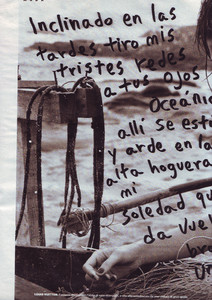 Inclinado en las
tardes tiro mis
tristes redes
a tus ojos
Oceáni
allí se esti
y arde en la
alta hoguera
mi
soledad qu
da vuel
bra